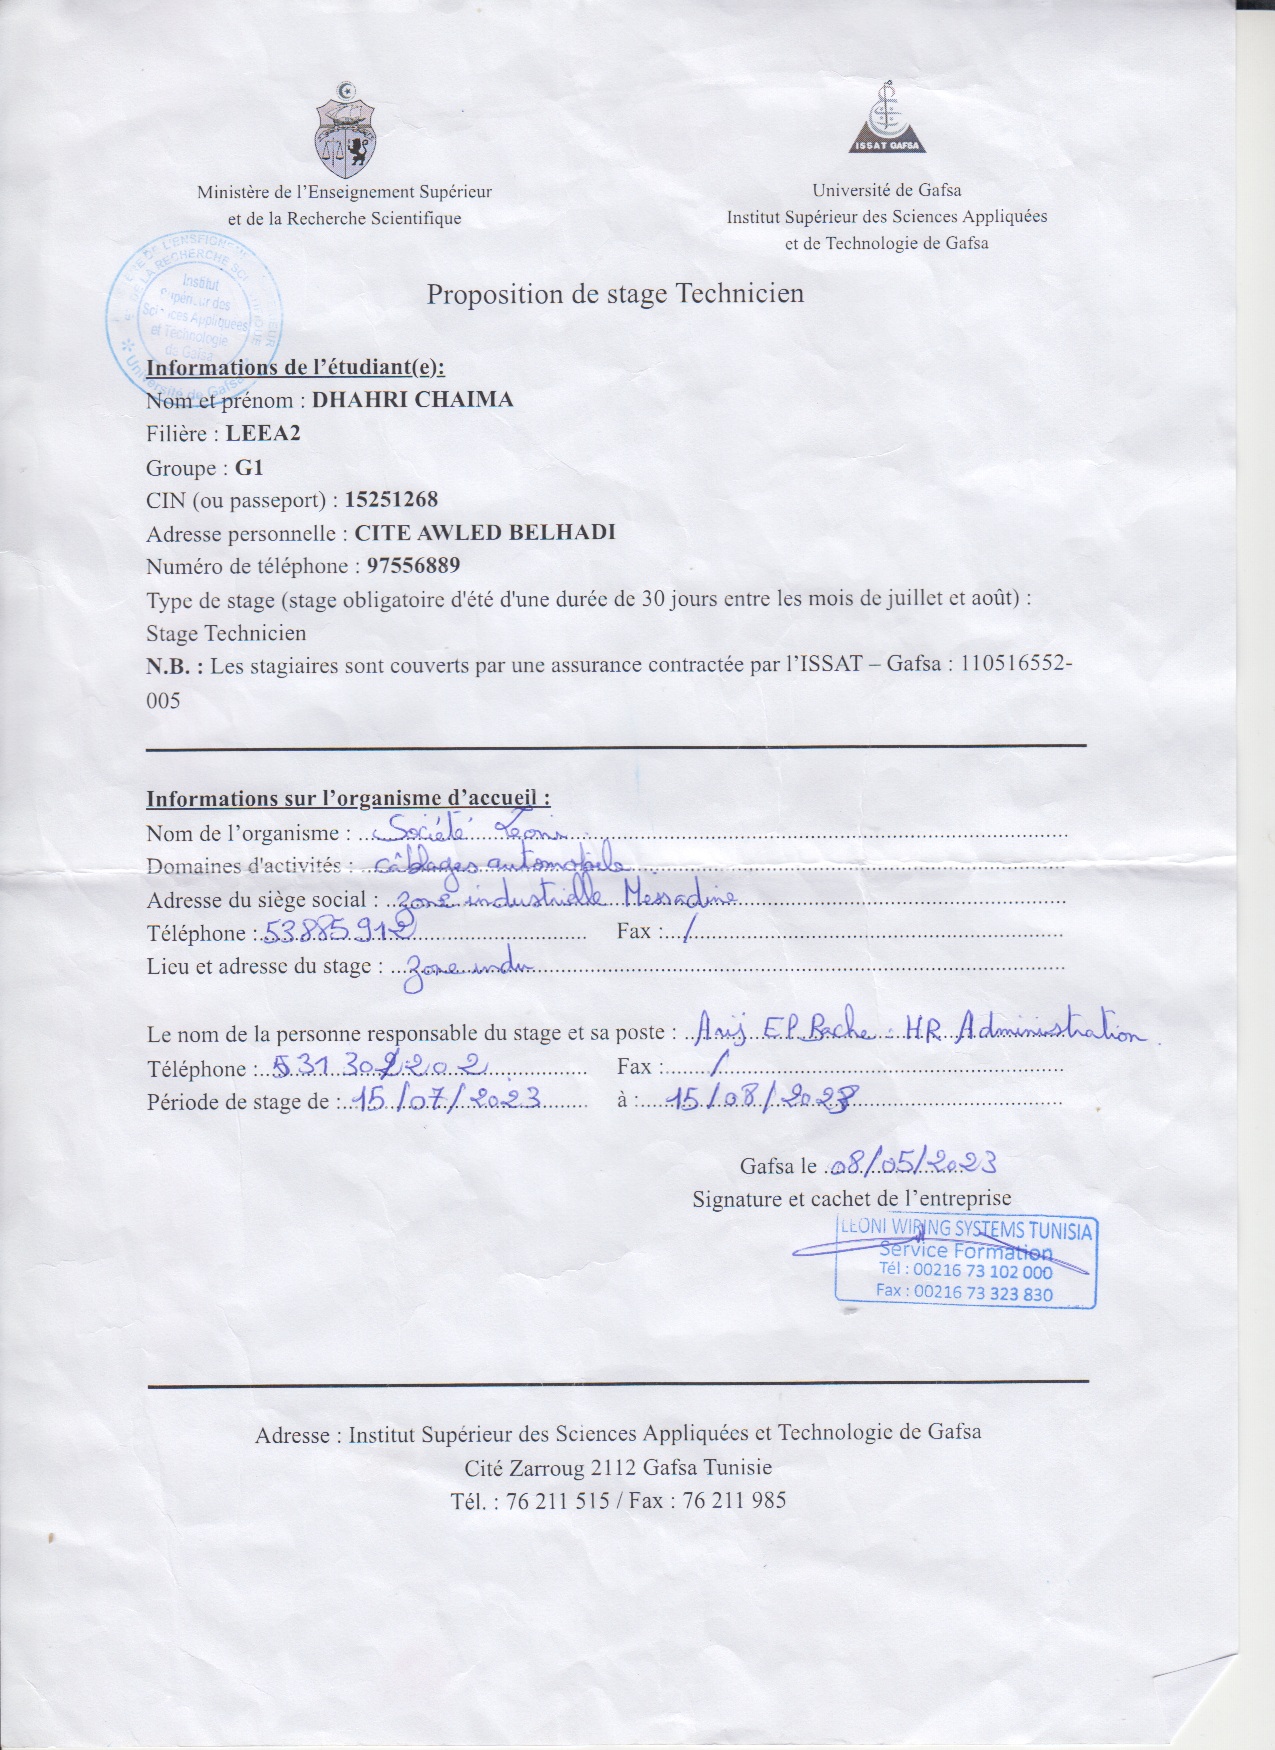 ISSAT GAFSA
Ministère de l'Enseignement Supérieur
et de la Recherche Scientifique
Université de Gafsa
Institut Supérieur des Sciences Appliquées
et de Technologie de Gafsa
Institut
Supérieur des
Sciences Appliquées
et Technologie
de Gafsa
Université de Gafsa
Proposition de stage Technicien
Informations de l'étudiant(e):
Nom et prénom : DHAHRI CHAIMA
Filière : LEEA2
Groupe : G1
CIN (ou passeport) : 15251268
Adresse personnelle : CITE AWLED BELHADI
Numéro de téléphone : 97556889
Type de stage (stage obligatoire d'été d'une durée de 30 jours entre les mois de juillet et août) :
Stage Technicien
N.B. : Les stagiaires sont couverts par une assurance contractée par l'ISSAT – Gafsa : 110516552-
005
Informations sur l'organisme d'accueil :
Nom de l'organisme : Société Leoni
Domaines d'activités : câblages automobile
Adresse du siège social : Zone industrielle Messadine
Téléphone : 53885912 Fax : /
Lieu et adresse du stage : Zone indu
Le nom de la personne responsable du stage et sa poste : Arij El Bache : HR Administration.
Téléphone : 531 302 202 Fax : /
Période de stage de : 15/07/2023 à : 15/08/2023
Gafsa le 08/05/2023
Signature et cachet de l'entreprise
LEONI WIRING SYSTEMS TUNISIA
Service Formation
Tél : 00216 73 102 000
Fax : 00216 73 323 830
Adresse : Institut Supérieur des Sciences Appliquées et Technologie de Gafsa
Cité Zarroug 2112 Gafsa Tunisie
Tél. : 76 211 515 / Fax : 76 211 985